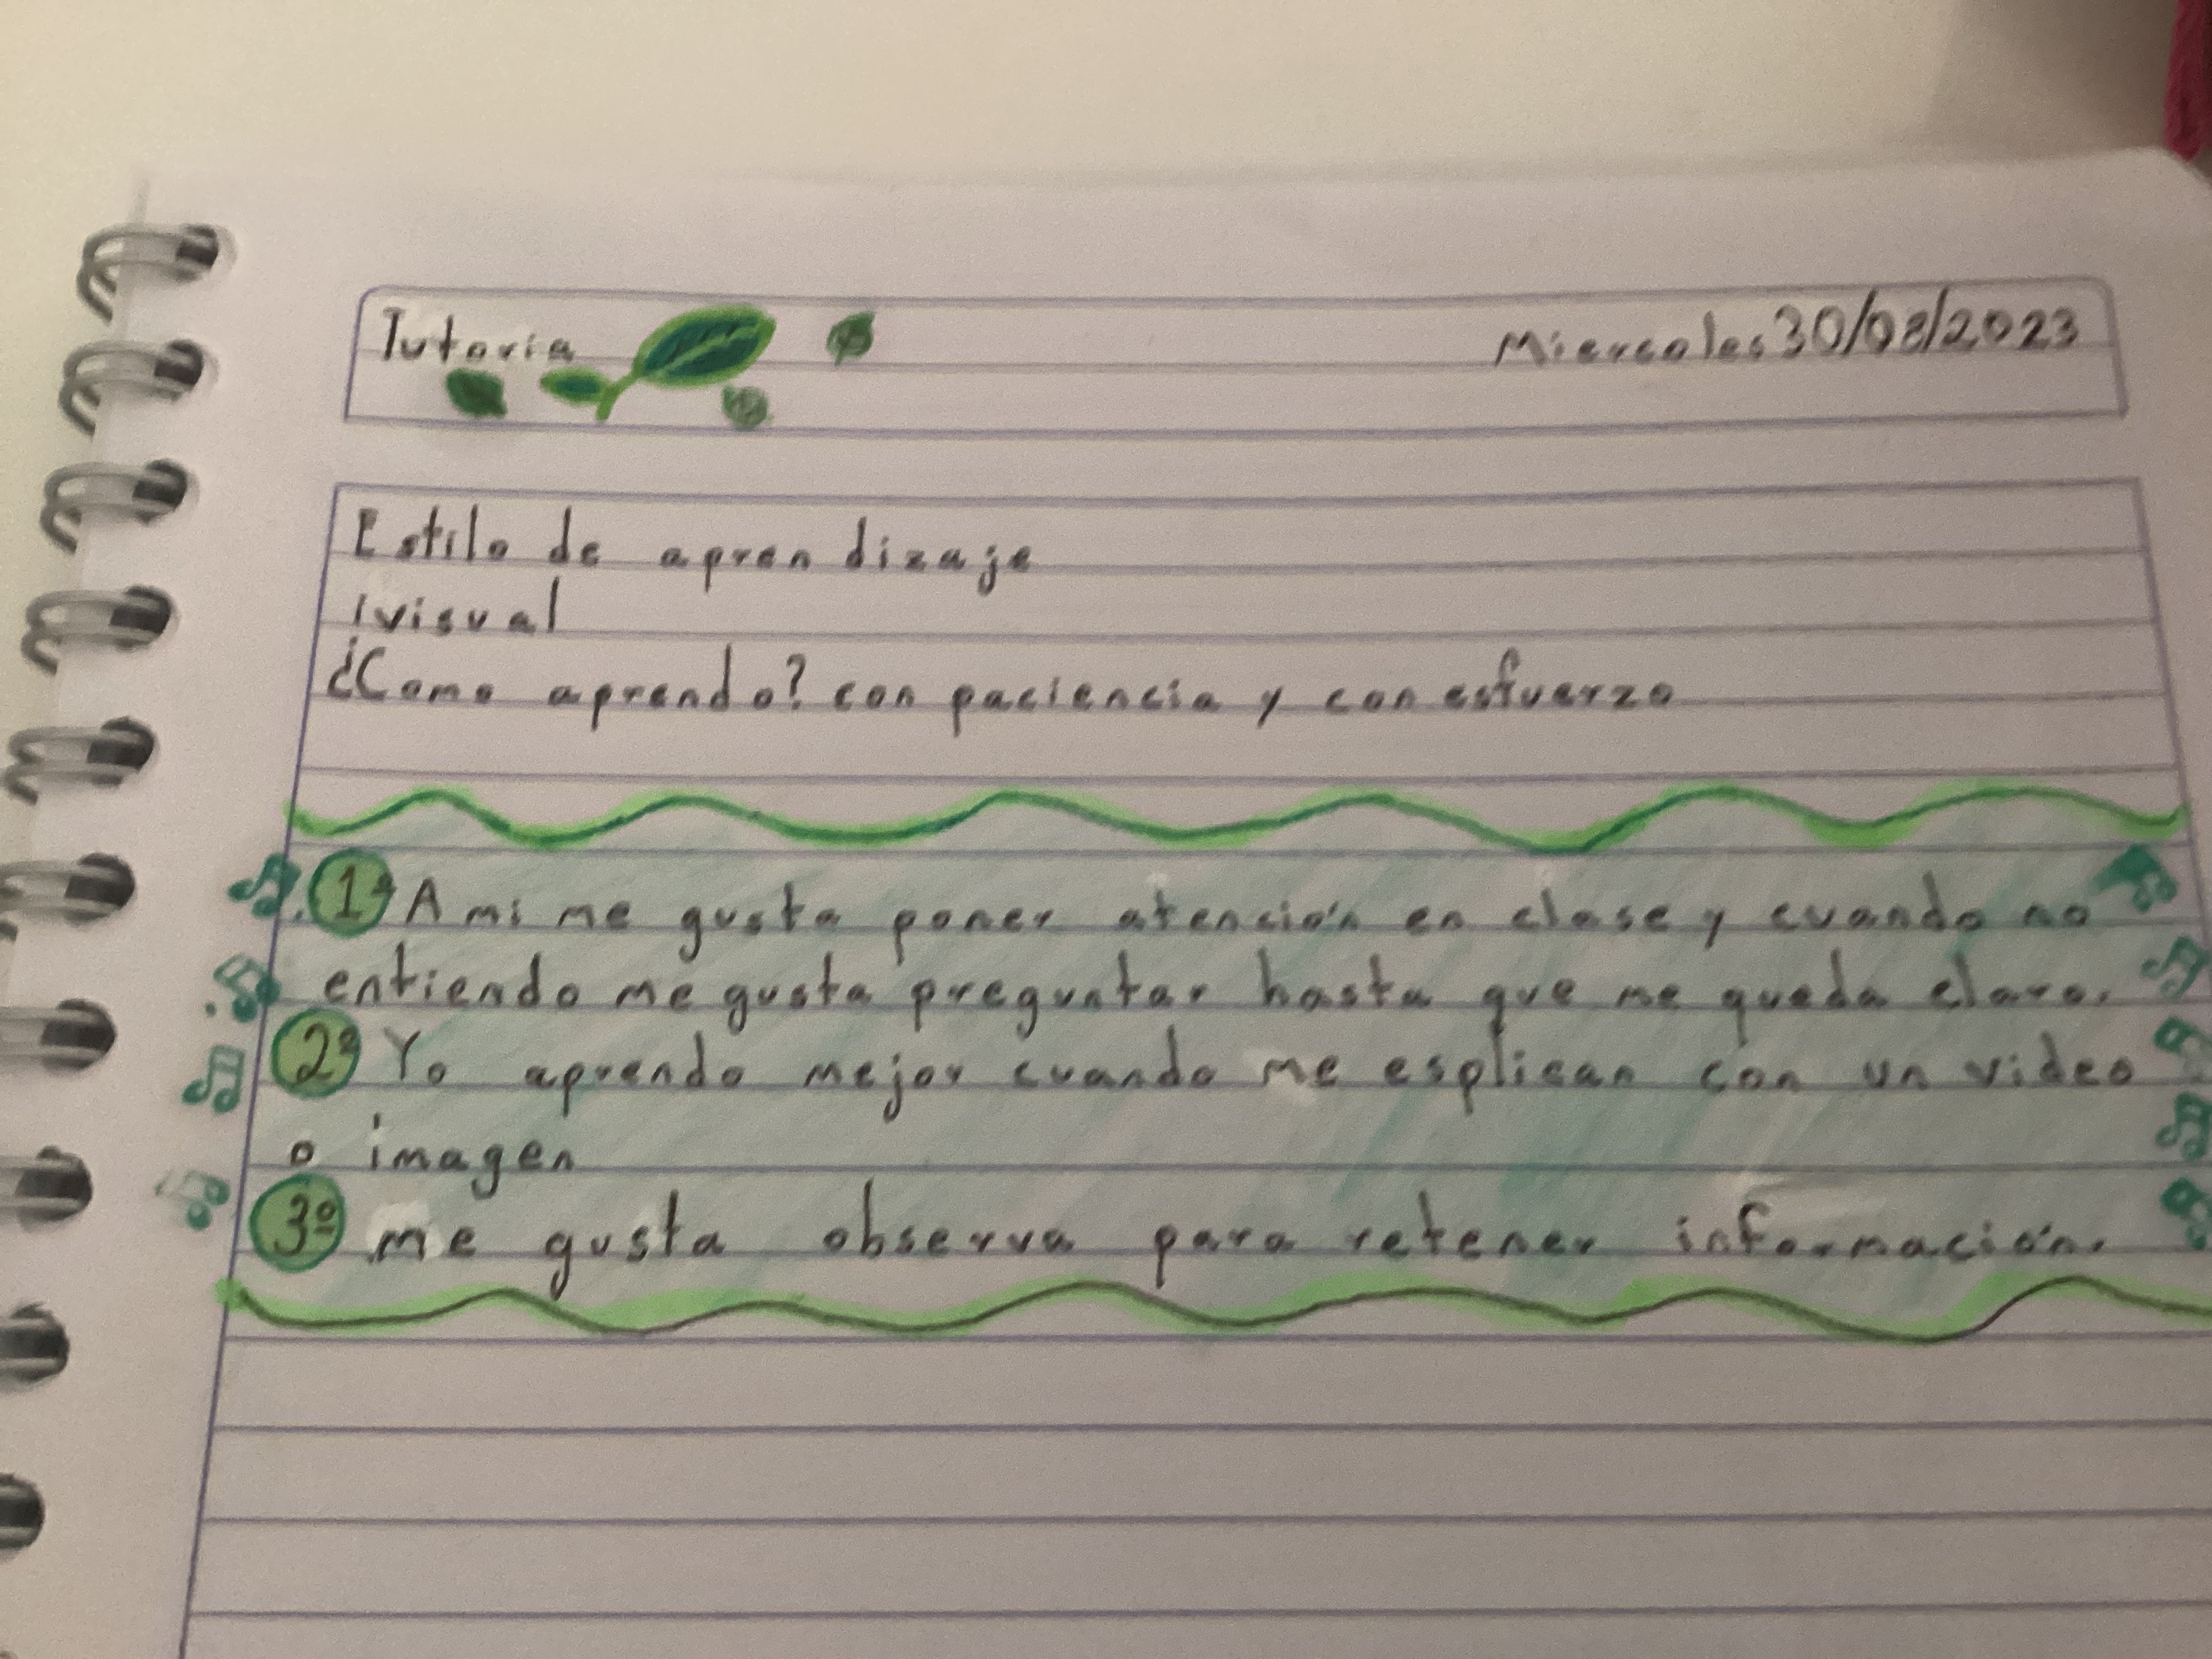 Tutoria
Miercoles 30/08/2023
Estilo de aprendizaje
¡visual
¿Como aprendo? con paciencia y con esfuerzo
1º A mi me gusta poner atención en clase y cuando no
entiendo me gusta preguntar hasta que me queda claro.
2º Yo aprendo mejor cuando me esplican con un video
o imagen
3º me gusta observa para retener información.